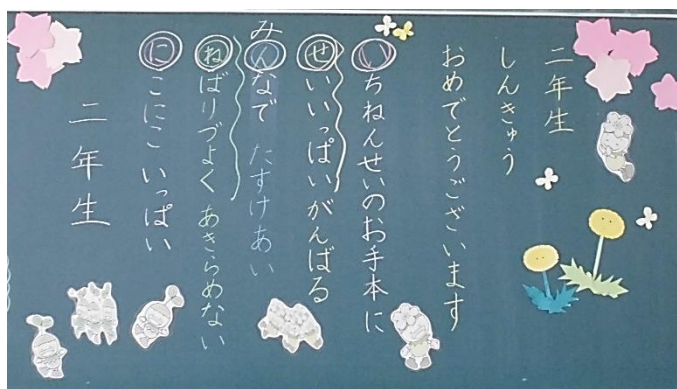 二年生
しんきゅう
おめでとうございます
いちねんせいのお手本に
せいいっぱいがんばる
みんなで たすけあい
ねばりづよく あきらめない
にこにこ いっぱい
二年生